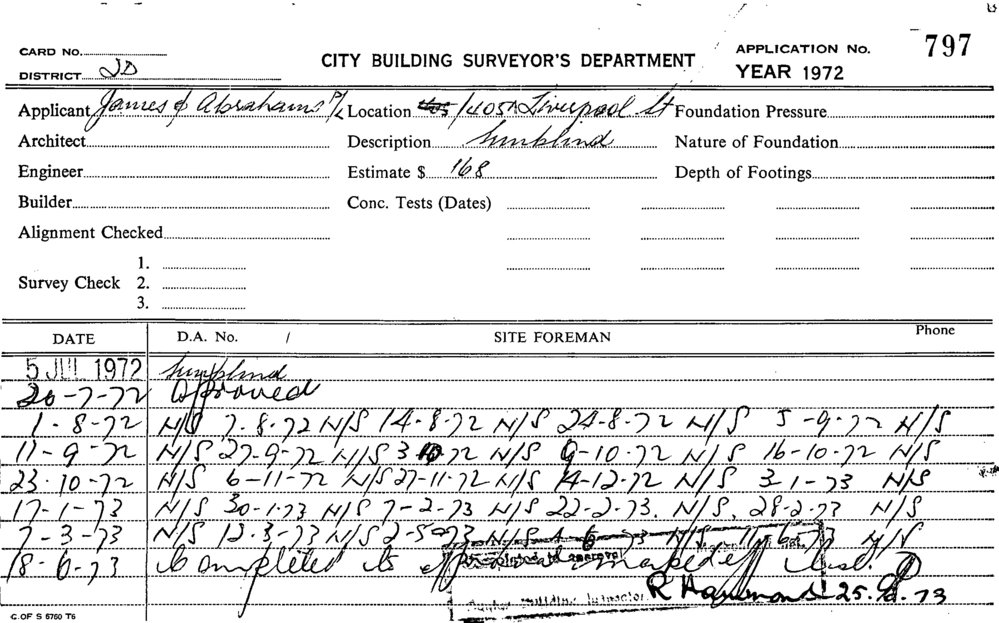 CARD No.
DISTRICT JD
CITY BUILDING SURVEYOR'S DEPARTMENT
APPLICATION No. 797
YEAR 1972
Applicant James & Abrahams P/L Location /405A Liverpool St Foundation Pressure
Architect Description Sunblind Nature of Foundation
Engineer Estimate $ 168 Depth of Footings
Builder Conc. Tests (Dates)
Alignment Checked
1.
Survey Check 2.
3.
DATE D.A. No. / SITE FOREMAN Phone
5 JUL 1972 Sunblind
20-7-72 Approved
1-8-72 N/S 7-8-72 N/S 14-8-72 N/S 24-8-72 N/S 5-9-72 N/S
11-9-72 N/S 27-9-72 N/S 3 10 72 N/S 9-10-72 N/S 16-10-72 N/S
23-10-72 N/S 6-11-72 N/S 27-11-72 N/S 4-12-72 N/S 3-1-73 N/S
17-1-73 N/S 30-1-73 N/S 7-2-73 N/S 22-2-73. N/S. 28-2-73 N/S
7-3-73 N/S 12.3-73 N/S 2-5-73 N/S 6-73 N/S 11-6-73
18-6-73 Completed to approval marked off list.
Building Inspector R Hammond 25. 73
C. OF S 6760 T6